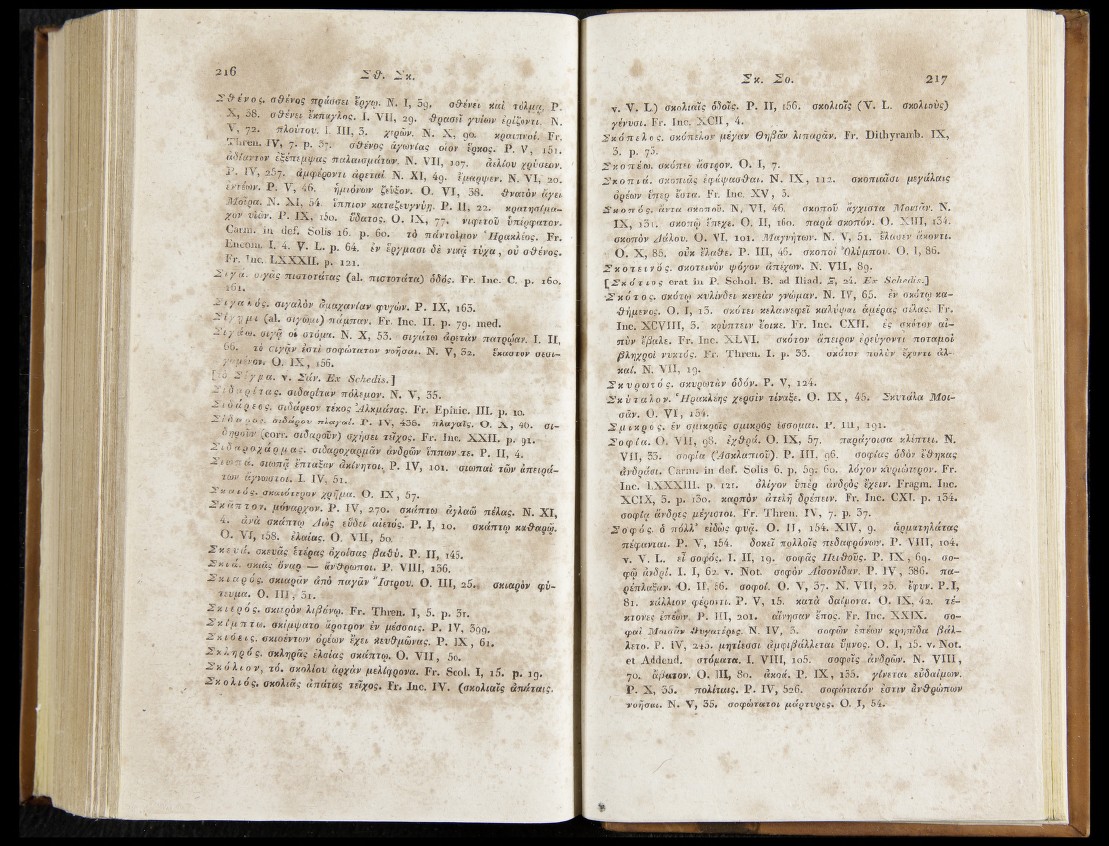 216 Σθ. Σκ.
Σθένος. σθένος πράσσει ἔργῳ. N. I, 39. σθένει καὶ τόλμᾳ. P.
X, 38. σθένει ἔκπαγλος. I. VII, 29. θρασεῖ γυίων ἐρίζοντι. N.
V, 72. πλούτου. I. III, 3. χερῶν. N. X, 90. κραιπνοί. Fr.
Thren. IV, 7. p. 37. σθένος ἀγωνίας οἷον ἕρκος. P. V, 151.
ἀδίαντον ἐξέπεμψας παλαισμάτων. N. VII, 107. ἀελίου χρύσεον.
P. IV, 257. ἀμφέροντι ἀρεταί. N. XI, 49. ἔμαρψεν. N. VI, 20.
ἐντέων. P. V, 46. ἡμιόνων ζεῦξον. O. VI, 38. θνατὸν ἄγει
Μοῖρα. N. XI, 54. ἵππιον καταζευγνύῃ. P. II, 22. κρατησίμα-
χον υἱῶν. P. IX, 150. ὕδατος. O. IX, 77. νιφετοῦ ὑπέρφατον.
Carm. in def. Solis 16. p. 60. τὸ πάντολμον Ἡρακλέος. Fr.
Encom. I. 4. V. L. p. 64. ἐν ἔργμασι δὲ νικᾷ τύχα, οὐ σθένος.
Fr. Inc. LXXXII. p. 121.
Σιγά. σιγᾶς πιστοτάτας (al. πιστοτάτα) ὁδός. Fr. Inc. C. p. 160.
161.
Σιγαλός. σιγαλὸν ἀμαχανίαν φυγών. P. IX, 163.
(al. σιγῶμι) πάμπαν. Fr. Inc. II. p. 79. med.
Σιγάω. σιγᾷ οἱ στόμα. N. X, 53. σιγάτω ἀρετὰν πατρῴαν. I. II,
66. τὸ σιγᾷν ἐστὶ σοφώτατον νοῆσαι. N. V, 32. ἕκαστον σεσι-
γαμένον. O. IX, 156.
Σίγμα. v. Σάν. Ex Schedis.]
Σιδαρίτας. σιδαρίταν πόλεμον. N. V, 35.
Σιδάρεος. σιδάρεον τέκος Ἀλκμάνας. Fr. Epinic. III. p. 10.
Σίδαρος. σιδάρου πλαγαί. P. IV, 436. πλαγαῖς. O. X, 46. σι-
δηροῦν (corr. σιδαροῦν) σχήσει τεῖχος. Fr. Inc. XXII. p. 91.
Σιδαροχάρμας. σιδαροχαρμᾶν ἀνδρῶν ἵππων τε. P. II, 4.
Σιωπά. σιωπᾷ ἔπταξαν ἀκίνητοι. P. IV, 101. σιωπαὶ τῶν ἀπειρά-
των ἄγνωστοι. I. IV, 51.
Σκαιός. σκαιότερον χρῆμα. O. IX, 57.
Σκᾶπτον. μόναρχον. P. IV, 270. σκάπτω ἀγλαῷ πέλας. N. XI,
4. ἀνὰ σκάπτῳ Διὸς εὕδει αἰετός. P. I, 10. σκάπτῳ καθαρῷ.
O. VI, 158. ἐλαίας. O. VII, 50.
Σκευά. σκευᾶς ἑτέρας ὀχοίσας βαθύ. P. II, 145.
Σκιά. σκιᾶς ὄναρ — ἄνθρωποι. P. VIII, 136.
Σκιαρός. σκιαρᾶν ἀπὸ παγᾶν Ἴστρου. O. III, 25. σκιαρὸν φύ-
τευμα. O. III, 31.
Σκιερός. σκιερὸν λιβάνῳ. Fr. Thren. I, 5. p. 31.
Σκίμπτω. σκίμψατο ἄροτρον ἐν μέσσοις. P. IV, 399.
Σκιόεις. σκιοέντων ὀρέων ἔχει κευθμῶνας. P. IX, 61.
Σκληρός. σκληρᾶς ἐλαίας σκάπτῳ. O. VII, 50.
Σκόλιον, τό. σκολίου ἀρχὰν μελίφρονα. Fr. Scol. I, 15. p. 19.
Σκολιός. σκολιᾶς ἀπάτας τεῖχος. Fr. Inc. IV. (σκολιαῖς ἀπάταις.
Σκ. Σο. 217
v. V. L.) σκολιαῖς ὁδοῖς. P. II, 156. σκολιοῖς (V. L. σκολιοὺς)
γένυσι. Fr. Inc. XCII, 4.
Σκόπελος. σκόπελον μέγαν Θηβᾶν λιπαρᾶν. Fr. Dithyramb. IX,
3. p. 75.
Σκοπέω. σκόπει ἄστρον. O. I, 7.
Σκοπιά. σκοπιᾶς ἐφάψασθαι. N. IX, 112. σκοπιαῖσι μεγάλαις
ὀρέων ὕπερ ἔστα. Fr. Inc. XV, 3.
Σκοπός. ἄντα σκοποῦ. N. VI, 46. σκοποῦ ἄγχιστα Μοισᾶν. N.
IX, 131. σκοπῷ ἔπεχε. O. II, 160. παρὰ σκοπόν. O. XIII, 134.
σκοπὸν Δάλου. O. VI, 101. Μαγνήτων. N. V, 51. ἔλασεν ἄκοντι.
O. X, 85. οὐκ ἔλαθε. P. III, 46. σκοποὶ Ὀλύμπου. O. I, 86.
Σκοτεινός. σκοτεινὸν ψόγον ἀπέχων. N. VII, 89.
[Σκότιος erat in P. Schol. B. ad Iliad. Ξ, 24. Ex Schedis.]
Σκότος. σκότῳ κυλίνδει κενεὰν γνώμαν. N. IV, 65. ἐν σκότῳ κα-
θήμενος. O. I, 13. σκότει κελαινεφεῖ καλύψαι ἁμέρας σέλας. Fr.
Inc. XCVIII, 3. κρύπτειν ἔοικε. Fr. Inc. CXII. ἐς σκότον αἰ-
πὺν ἔβαλε. Fr. Inc. XLVI. σκότον ἄπειρον ἐρεύγοντι ποταμοὶ
βληχροὶ νυκτός. Fr. Thren. I. p. 33. σκότον πολὺν ἔχοντι ἀλ-
καί. N. VII, 19.
Σκυρωτός. σκυρωτὰν ὁδόν. P. V, 124.
Σκύταλον. Ἡρακλέης χερσὶν τίναξε. O. IX, 45. Σκυτάλα Μοι-
σᾶν. O. VI, 154.
Σμικρός. ἐν σμικροῖς σμικρὸς ἔσσομαι. P. III, 191.
Σοφία. O. VII, 98. ἐχθρά. O. IX, 57. παράγοισα κλέπτει. N.
VII, 33. σοφίᾳ (Ἀσκλαπιοῦ). P. III. 96. σοφίας ὁδὸν ἔθηκας
ἀνδράσι. Carm. in def. Solis 6. p. 59. 60. λόγον κυριώτερον. Fr.
Inc. LXXXIII. p. 121. ὀλίγον ὑπὲρ ἀνδρὸς ἔχειν. Fragm. Inc.
XCIX, 3. p. 130. καρπὸν ἀτελῆ δρέπειν. Fr. Inc. CXI. p. 134.
σοφίᾳ ἄνδρες μέγιστοι. Fr. Thren. IV, 7. p. 37.
Σοφός. ὁ πόλλ' εἰδὼς φυᾷ. O. II, 154. XIV, 9. ἁρματηλάτας
πέφανται. P. V, 154. δοκεῖ πολλοῖς πεδαφρόνων. P. VIII, 104.
v. V. L. εἰ σοφός. I. II, 19. σοφᾶς Πειθοῦς. P. IX, 69. σο-
φῷ ἀνδρί. I. I, 62. v. Not. σοφὸν Αἰσονίδαν. P. IV, 386. πα-
ρέπλαξαν. O. II, 86. σοφοί. O. V, 37. N. VII, 25. ἔφυν. P. I,
81. κάλλιον φέροντι. P. V, 15. κατὰ δαίμονα. O. IX, 42. τέ-
κτονες ἐπέων. P. III, 201. αἴνησαν ἔπος. Fr. Inc. XXIX. σο-
φαὶ Μοισᾶν θυγατέρες. N. IV, 3. σοφῶν ἐπέων κρηπῖδα βάλ-
λετο. P. IV, 245. μητίεσσι ἀμφιβάλλεται ὕμνος. O. I, 15. v. Not.
et Addend. στόματα. I. VIII, 105. σοφοῖς ἀνδρῶν. N. VIII,
70. ἄβατον. O. III, 80. ἀκοά. P. IX, 135. γίνεται εὐδαίμων.
P. X, 35. πολίταις. P. IV, 526. σοφώτατόν ἐστιν ἀνθρώπων
νοῆσαι. N. V, 35. σοφώτατοι μάρτυρες. O. I, 54.